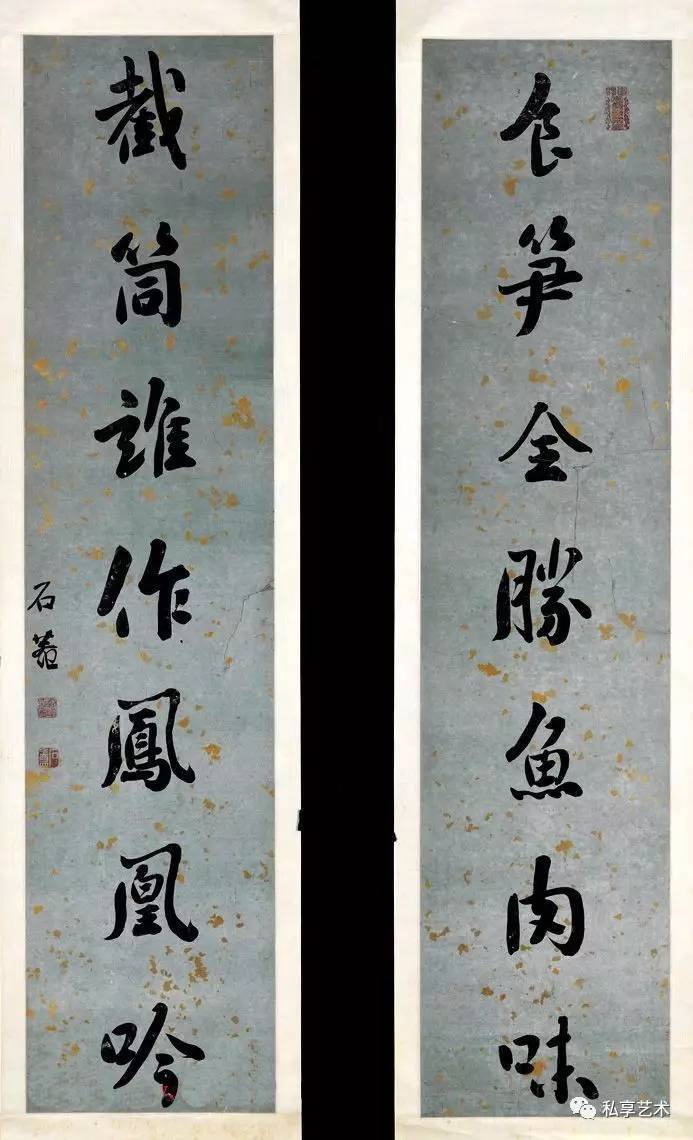 食笋全勝魚肉味
截筒誰作鳳凰吟
石菴
私享艺术